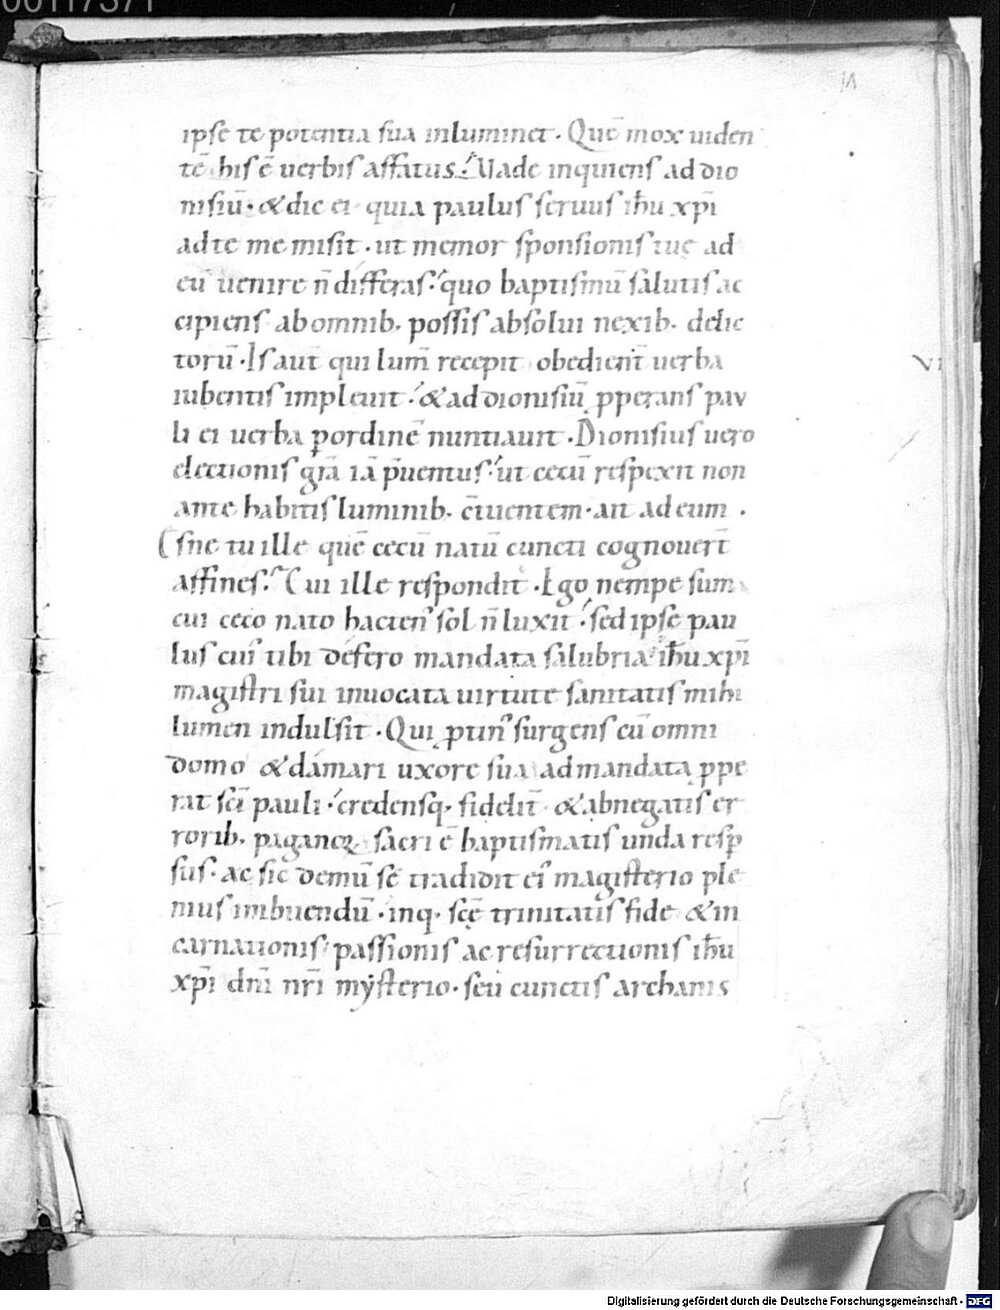 00117371
ipse te potentia sua inluminet . Quē mox uiden
tē his ē uerbis affatus . Uade inquiens ad dio
nisiū . & dic ei quia paulus seruus ihū xp̄i
ad te me misit . ut memor sponsionis tuę ad
eū uenire n̄ differas . quo baptismū salutis ac
cipiens ab omnib. possis absolui nexib. delic
torū . Is aut̄ qui lum̄ recepit obedient̄ uerba
iubentis impleuit . & ad dionisiū ꝓperans pau
li ei uerba ꝑ ordinē nuntiauit . Dionisius uero
electionis grā iā p̄uentus . ut cecū respexit non
ante habitis luminib. c̄tuentem . ait ad eum .
Esne tu ille quē cecū natū cuncti cognouer̄t
affines . Cui ille respondit . Ego nempe sum
cui ceco nato hacten᾿ sol n̄ luxit . sed ipse pau
lus cui᾿ tibi defero mandata salubria ihū xp̄i
magistri sui inuocata uirtute sanitatis mihi
lumen indulsit . Qui ꝓtin᾿ surgens cū omni
domo & damari uxore sua ad mandata ꝓpe
rat sc̄i pauli . credensq. fidelit̄ & abnegatis er
rorib. paganoꝝ sacri ē baptismatis unda resp
sus . ac sic demū se tradidit ei᾿ magisterio ple
nius imbuendū . inq. scę trinitatis fide & in
carnationis passionis ac resurrectionis ihū
xp̄i dn̄i nr̄i mẏsterio . seu cunctis archanis
VI
Digitalisierung gefördert durch die Deutsche Forschungsgemeinschaft - DFG